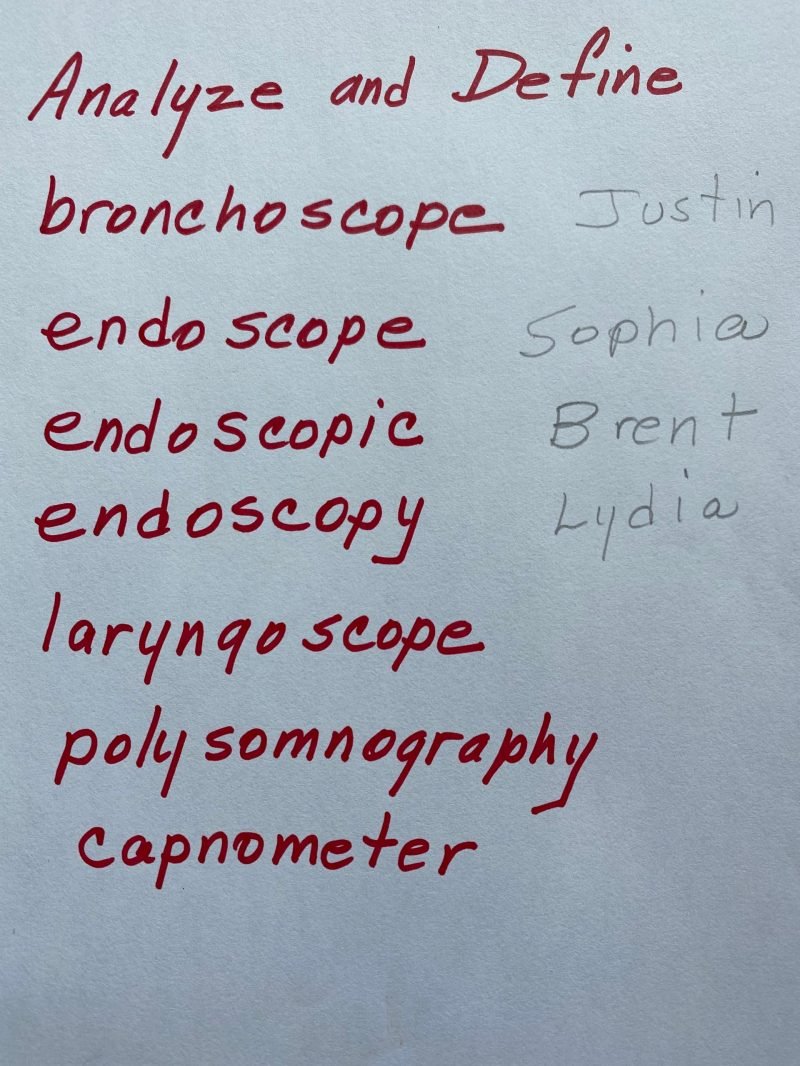 Analyze and Define
bronchoscope Justin
endoscope Sophia
endoscopic Brent
endoscopy Lydia
laryngoscope
polysomnography
capnometer